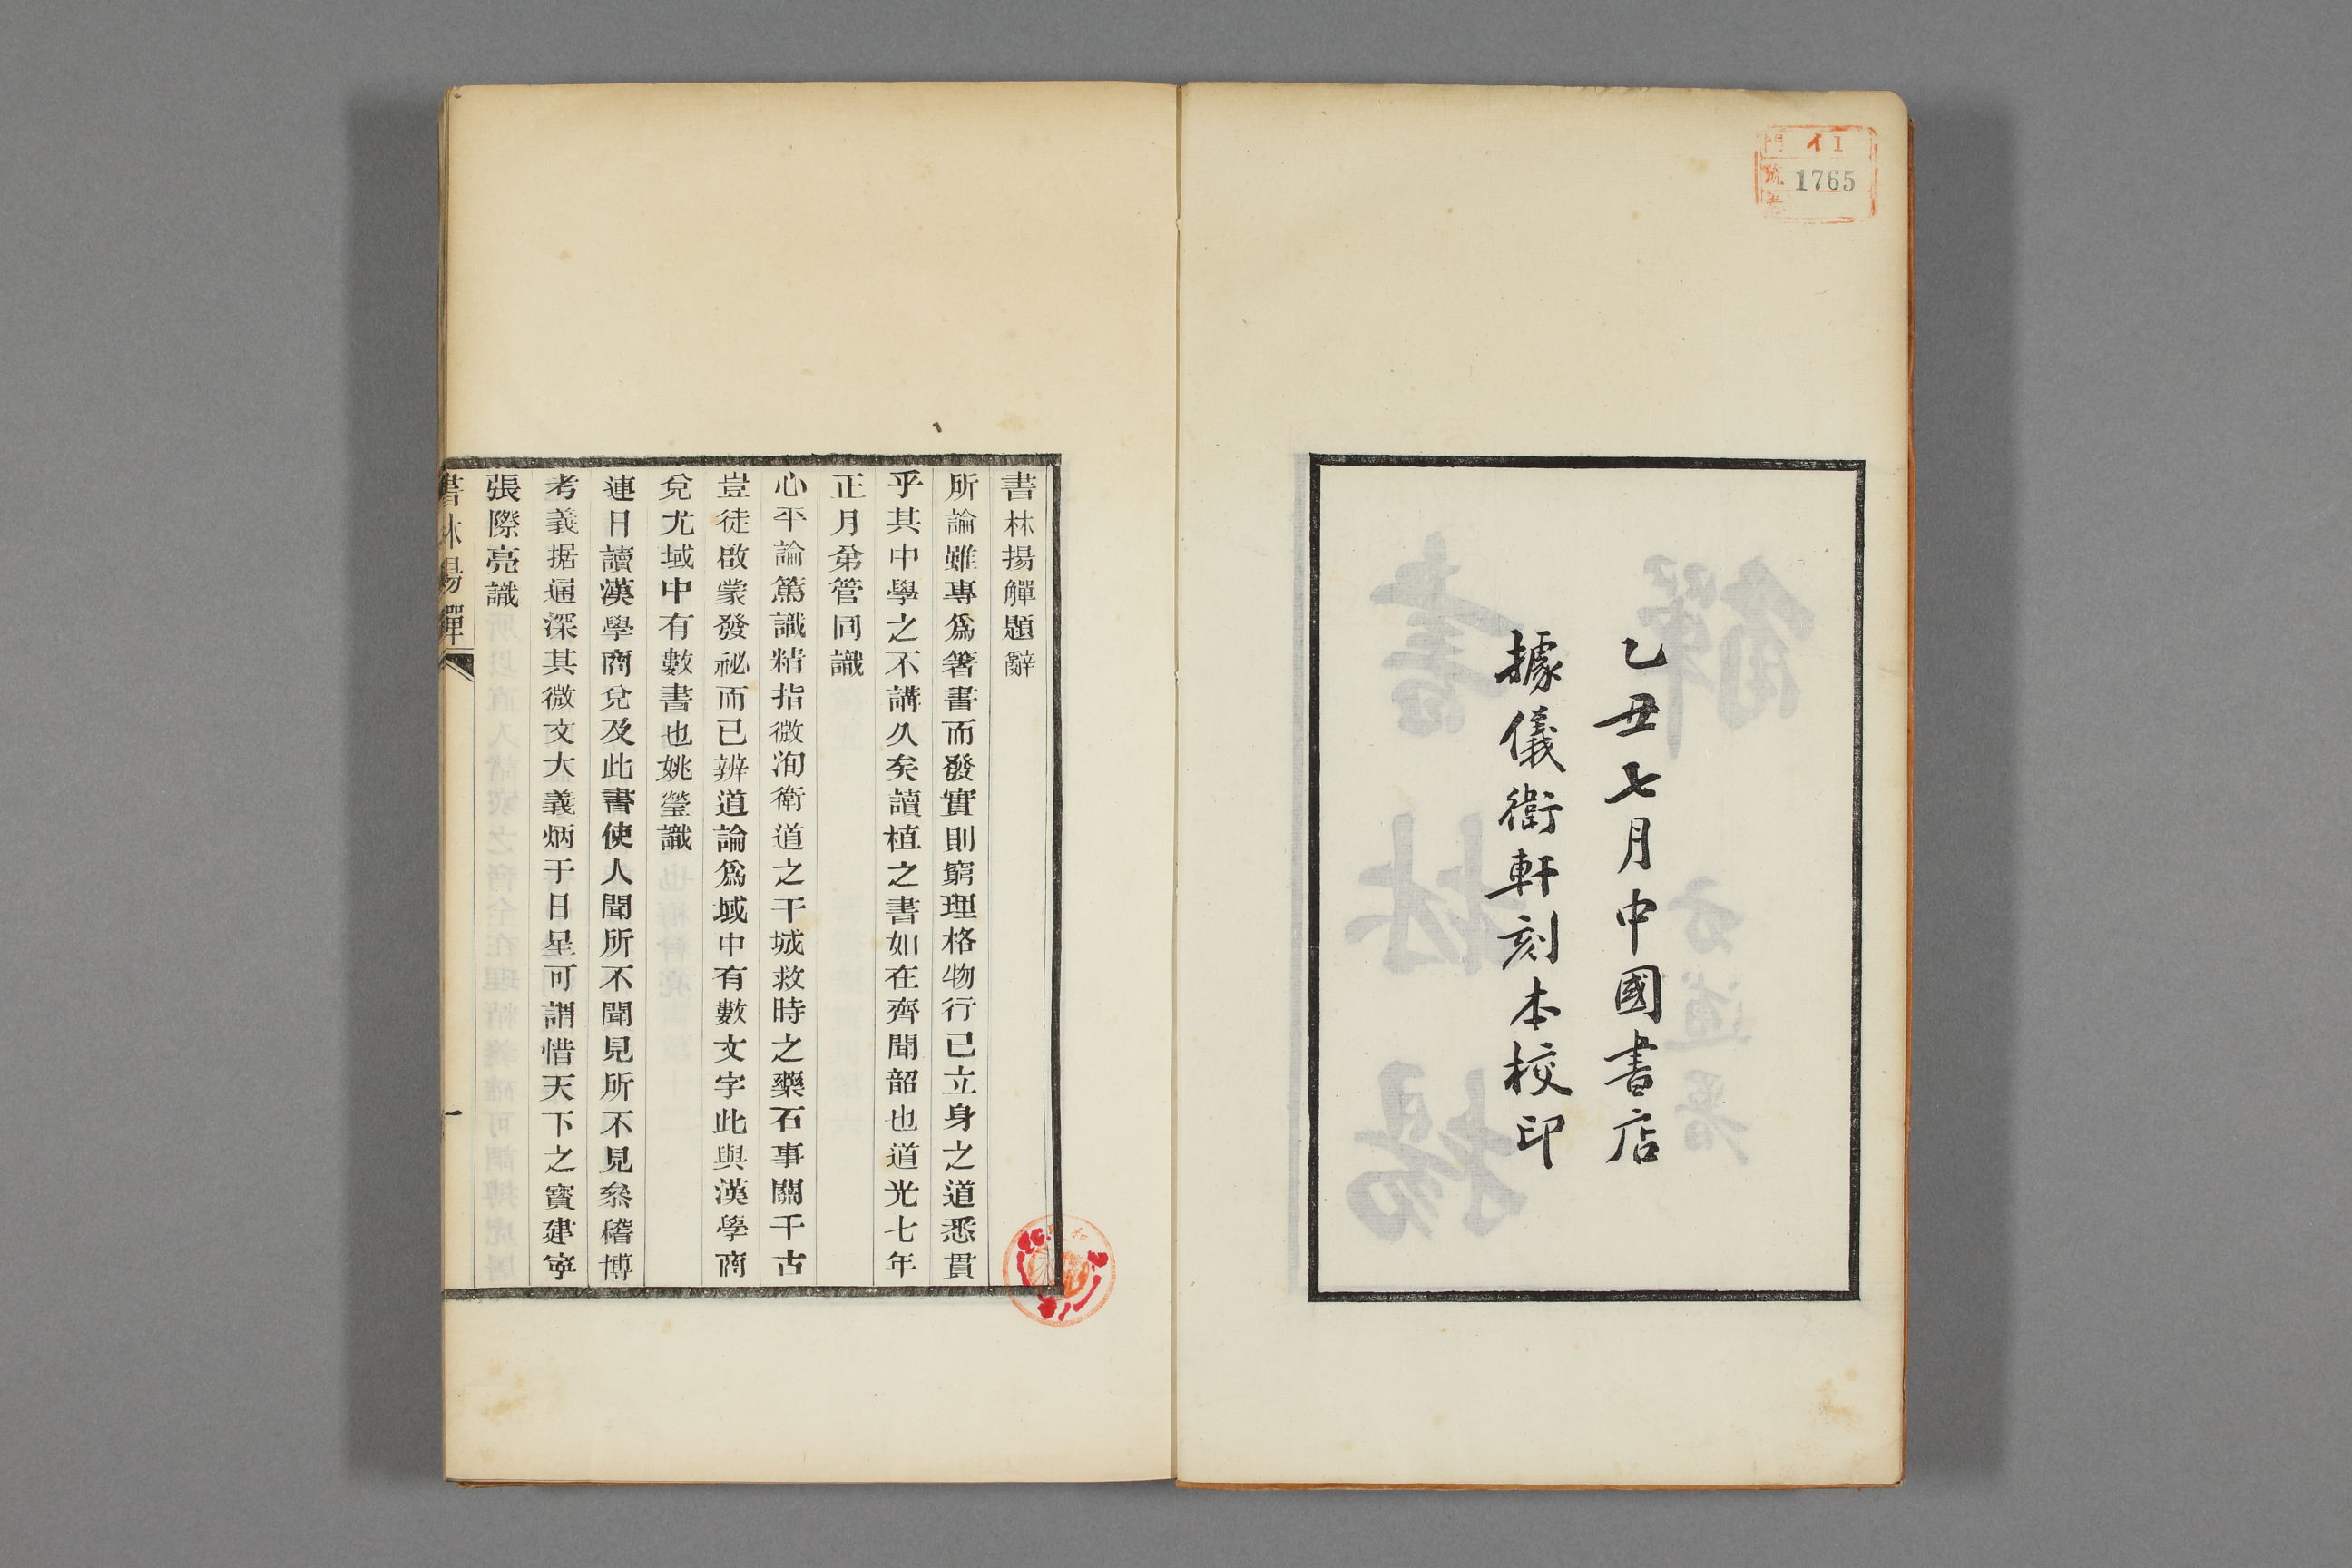 イ1
門
號
1765
乙丑七月中國書店
據儀衛軒刻本校印
書林揚觶題辭
所論雖專爲箸書而發實則窮理格物行已立身之道悉貫
乎其中學之不講久矣讀植之書如在齊聞韶也道光七年
正月弟管同識
心平論篤識精指微洵衛道之干城救時之藥石事關千古
豈徒啟蒙發祕而已辨道論爲域中有數文字此與漢學商
兌尤域中有數書也姚瑩識
連日讀漢學商兌及此書使人聞所不聞見所不見叅稽博
考義据通深其微文大義炳于日星可謂惜天下之寶建寧
張際亮識
書林揚觶
一